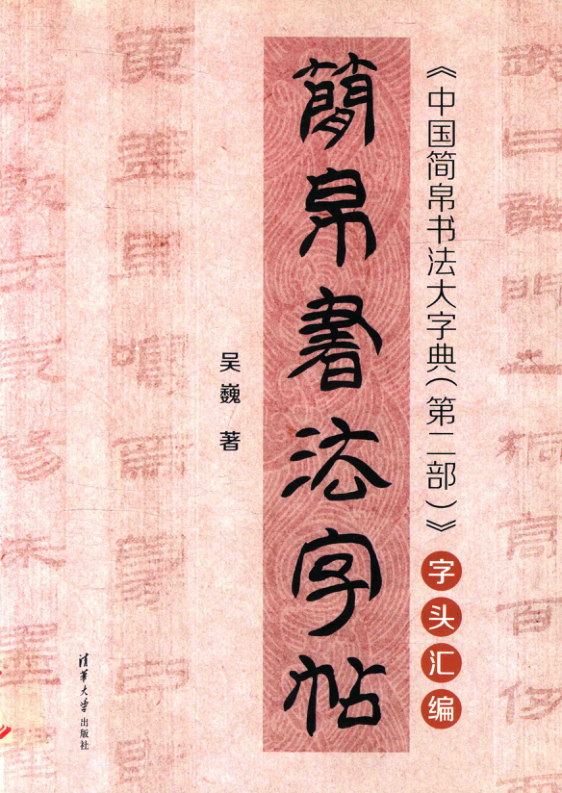 《中国简帛书法大字典（第二部）》字头汇编
簡帛書法字帖
吴巍 著
清华大学出版社